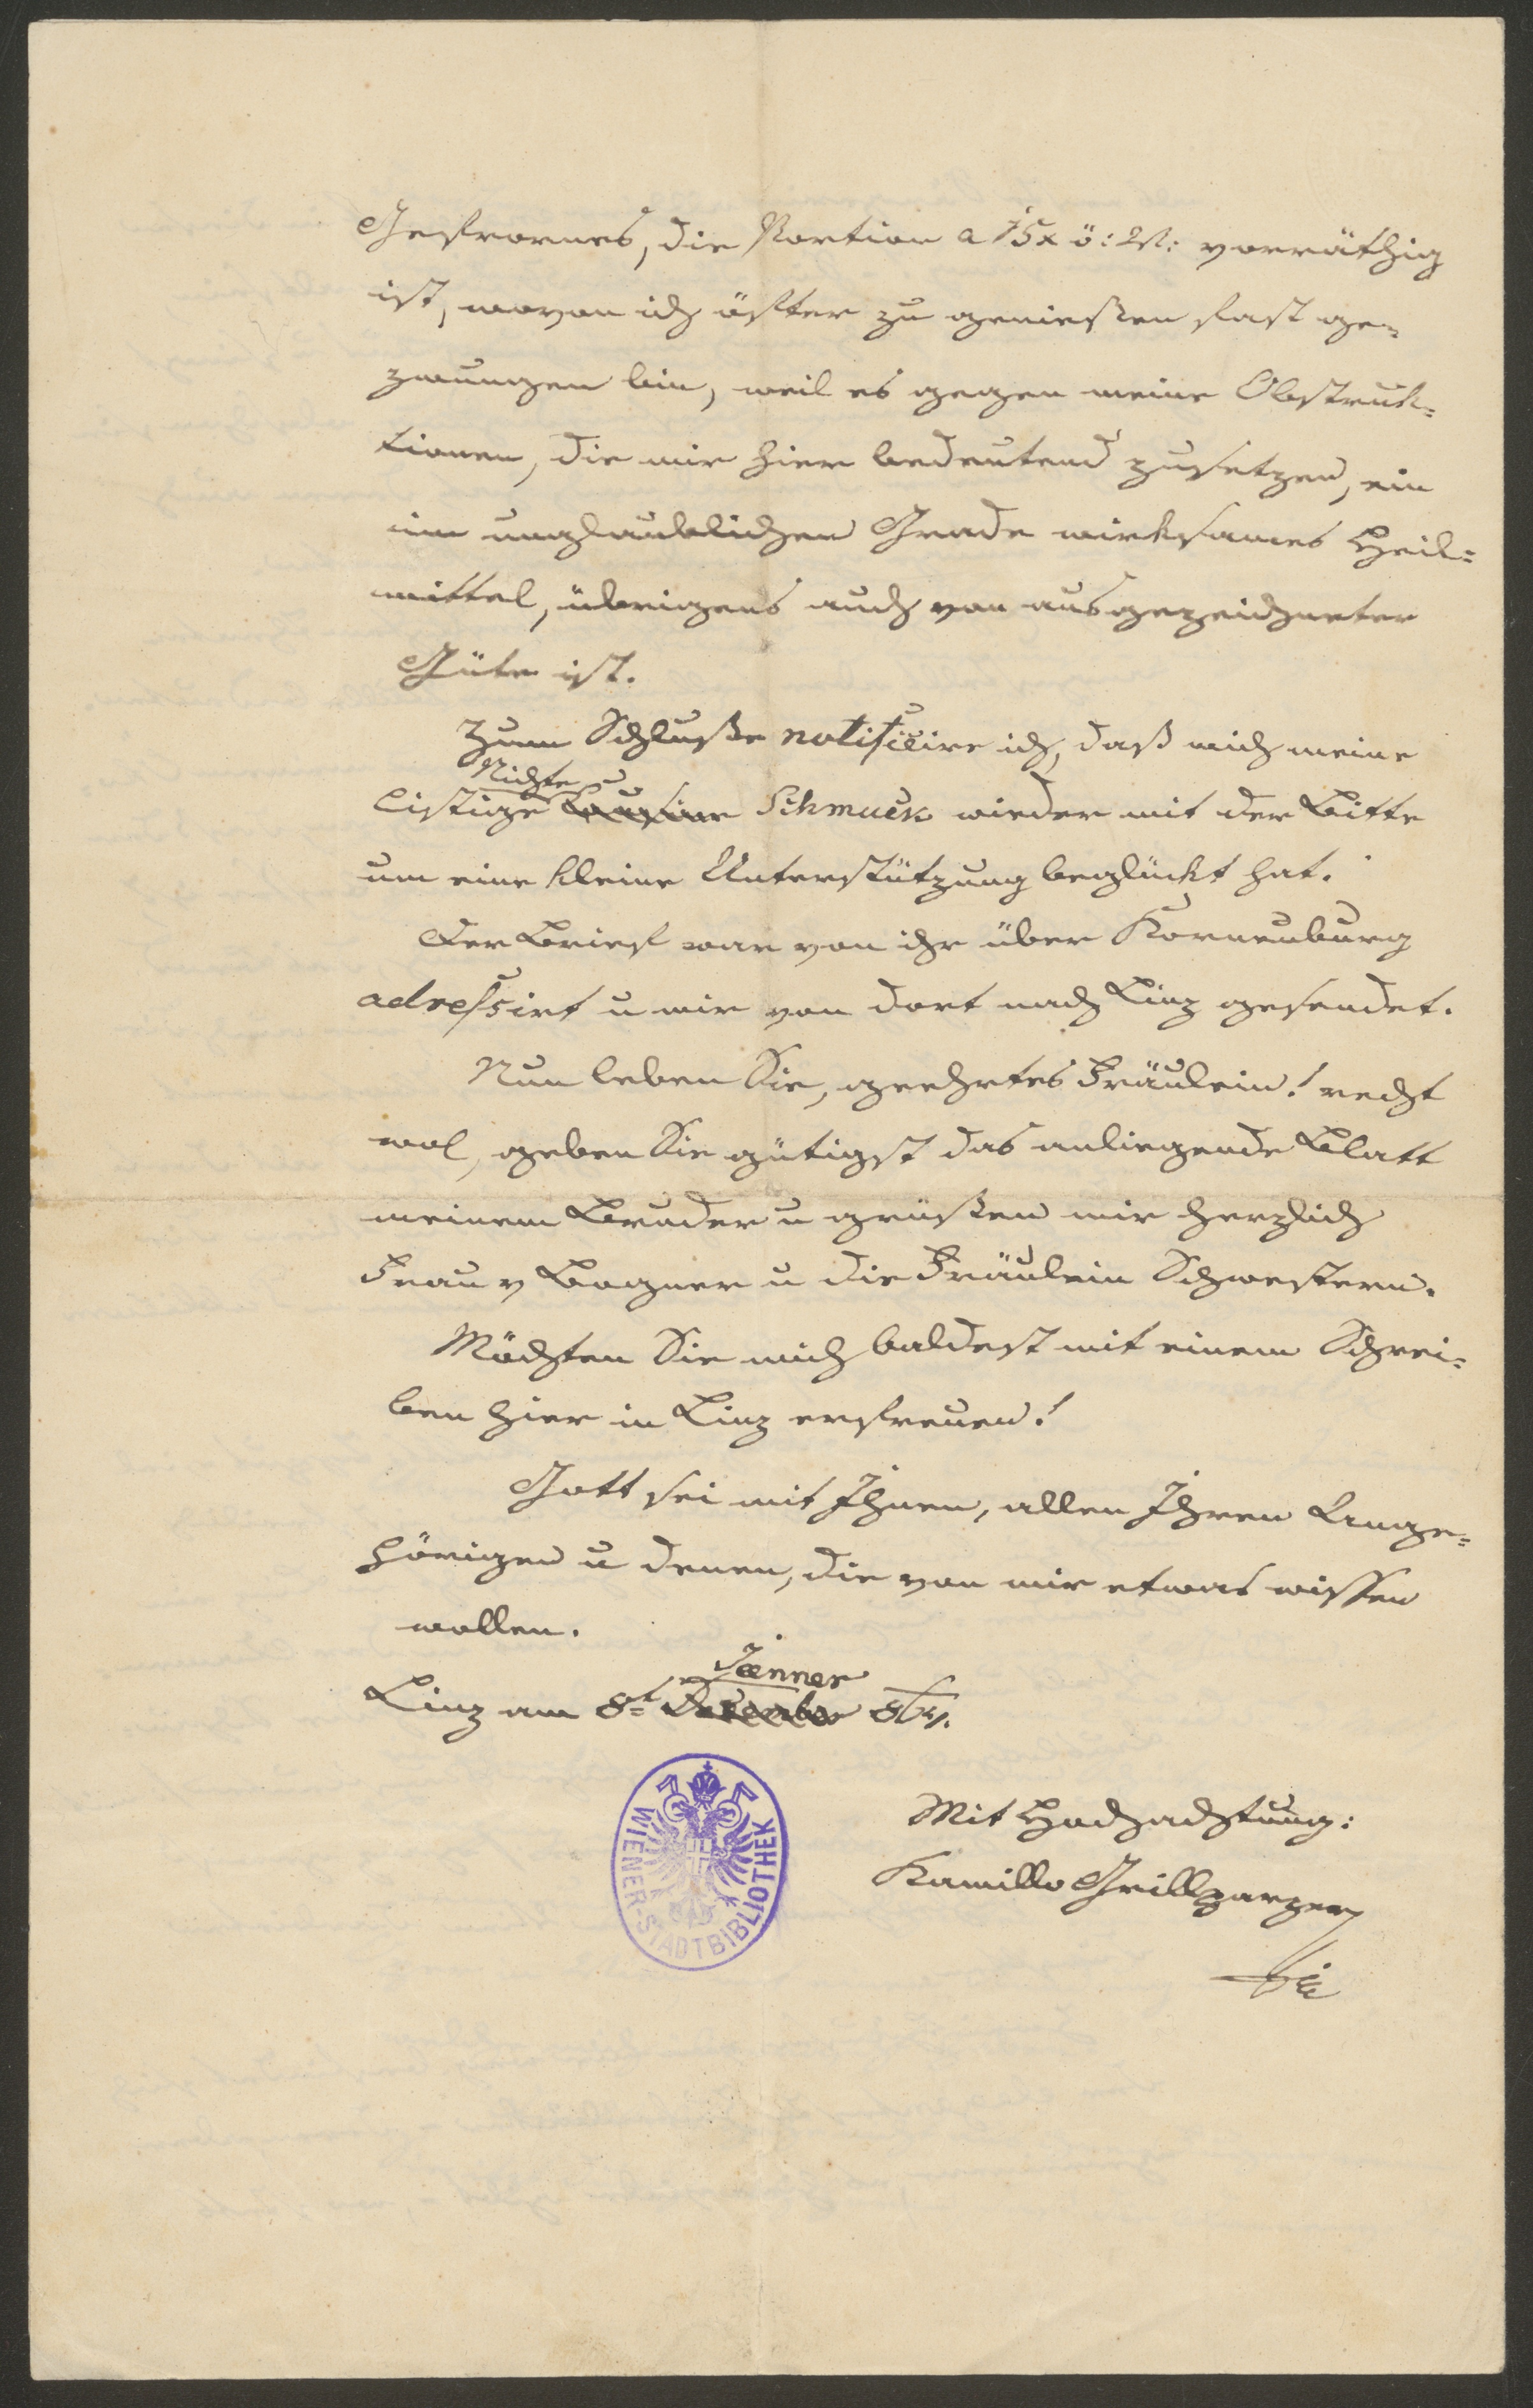 Gefrornes, die Portion a 15x ö: W: vorräthig
ist, wovon ich öfter zu genießen fast ge-
zwungen bin, weil es gegen meine Obstruk-
tionen, die mir hier bedeutend zusetzen, ein
im unglaublichen Grade wirksames Heil-
mittel, übrigens auch von ausgezeichneter
Güte ist.
Zum Schluße notificire ich, daß mich meine
Nichte
listige Cousine Schmuck wieder mit der Bitte
um eine kleine Unterstützung beglückt hat.
Der Brief war von ihr über Korneuburg
adressirt u mir von dort nach Linz gesendet.
Nun leben Sie, geehrtes Fräulein! recht
wol, geben Sie gütigst das anliegende Blatt
meinem Bruder u grüßen mir herzlich
Frau v Bogner u die Fräulein Schwestern.
Möchten Sie mich baldest mit einem Schrei-
ben hier in Linz erfreuen!
Gott sei mit Ihnen, allen Ihren Ange-
hörigen u denen, die von mir etwas wissen
wollen.
Jänner
Linz am 8t Dezember 864.
Mit Hochachtung:
Kamillo Grillparzer
WIENER-STADTBIBLIOTHEK